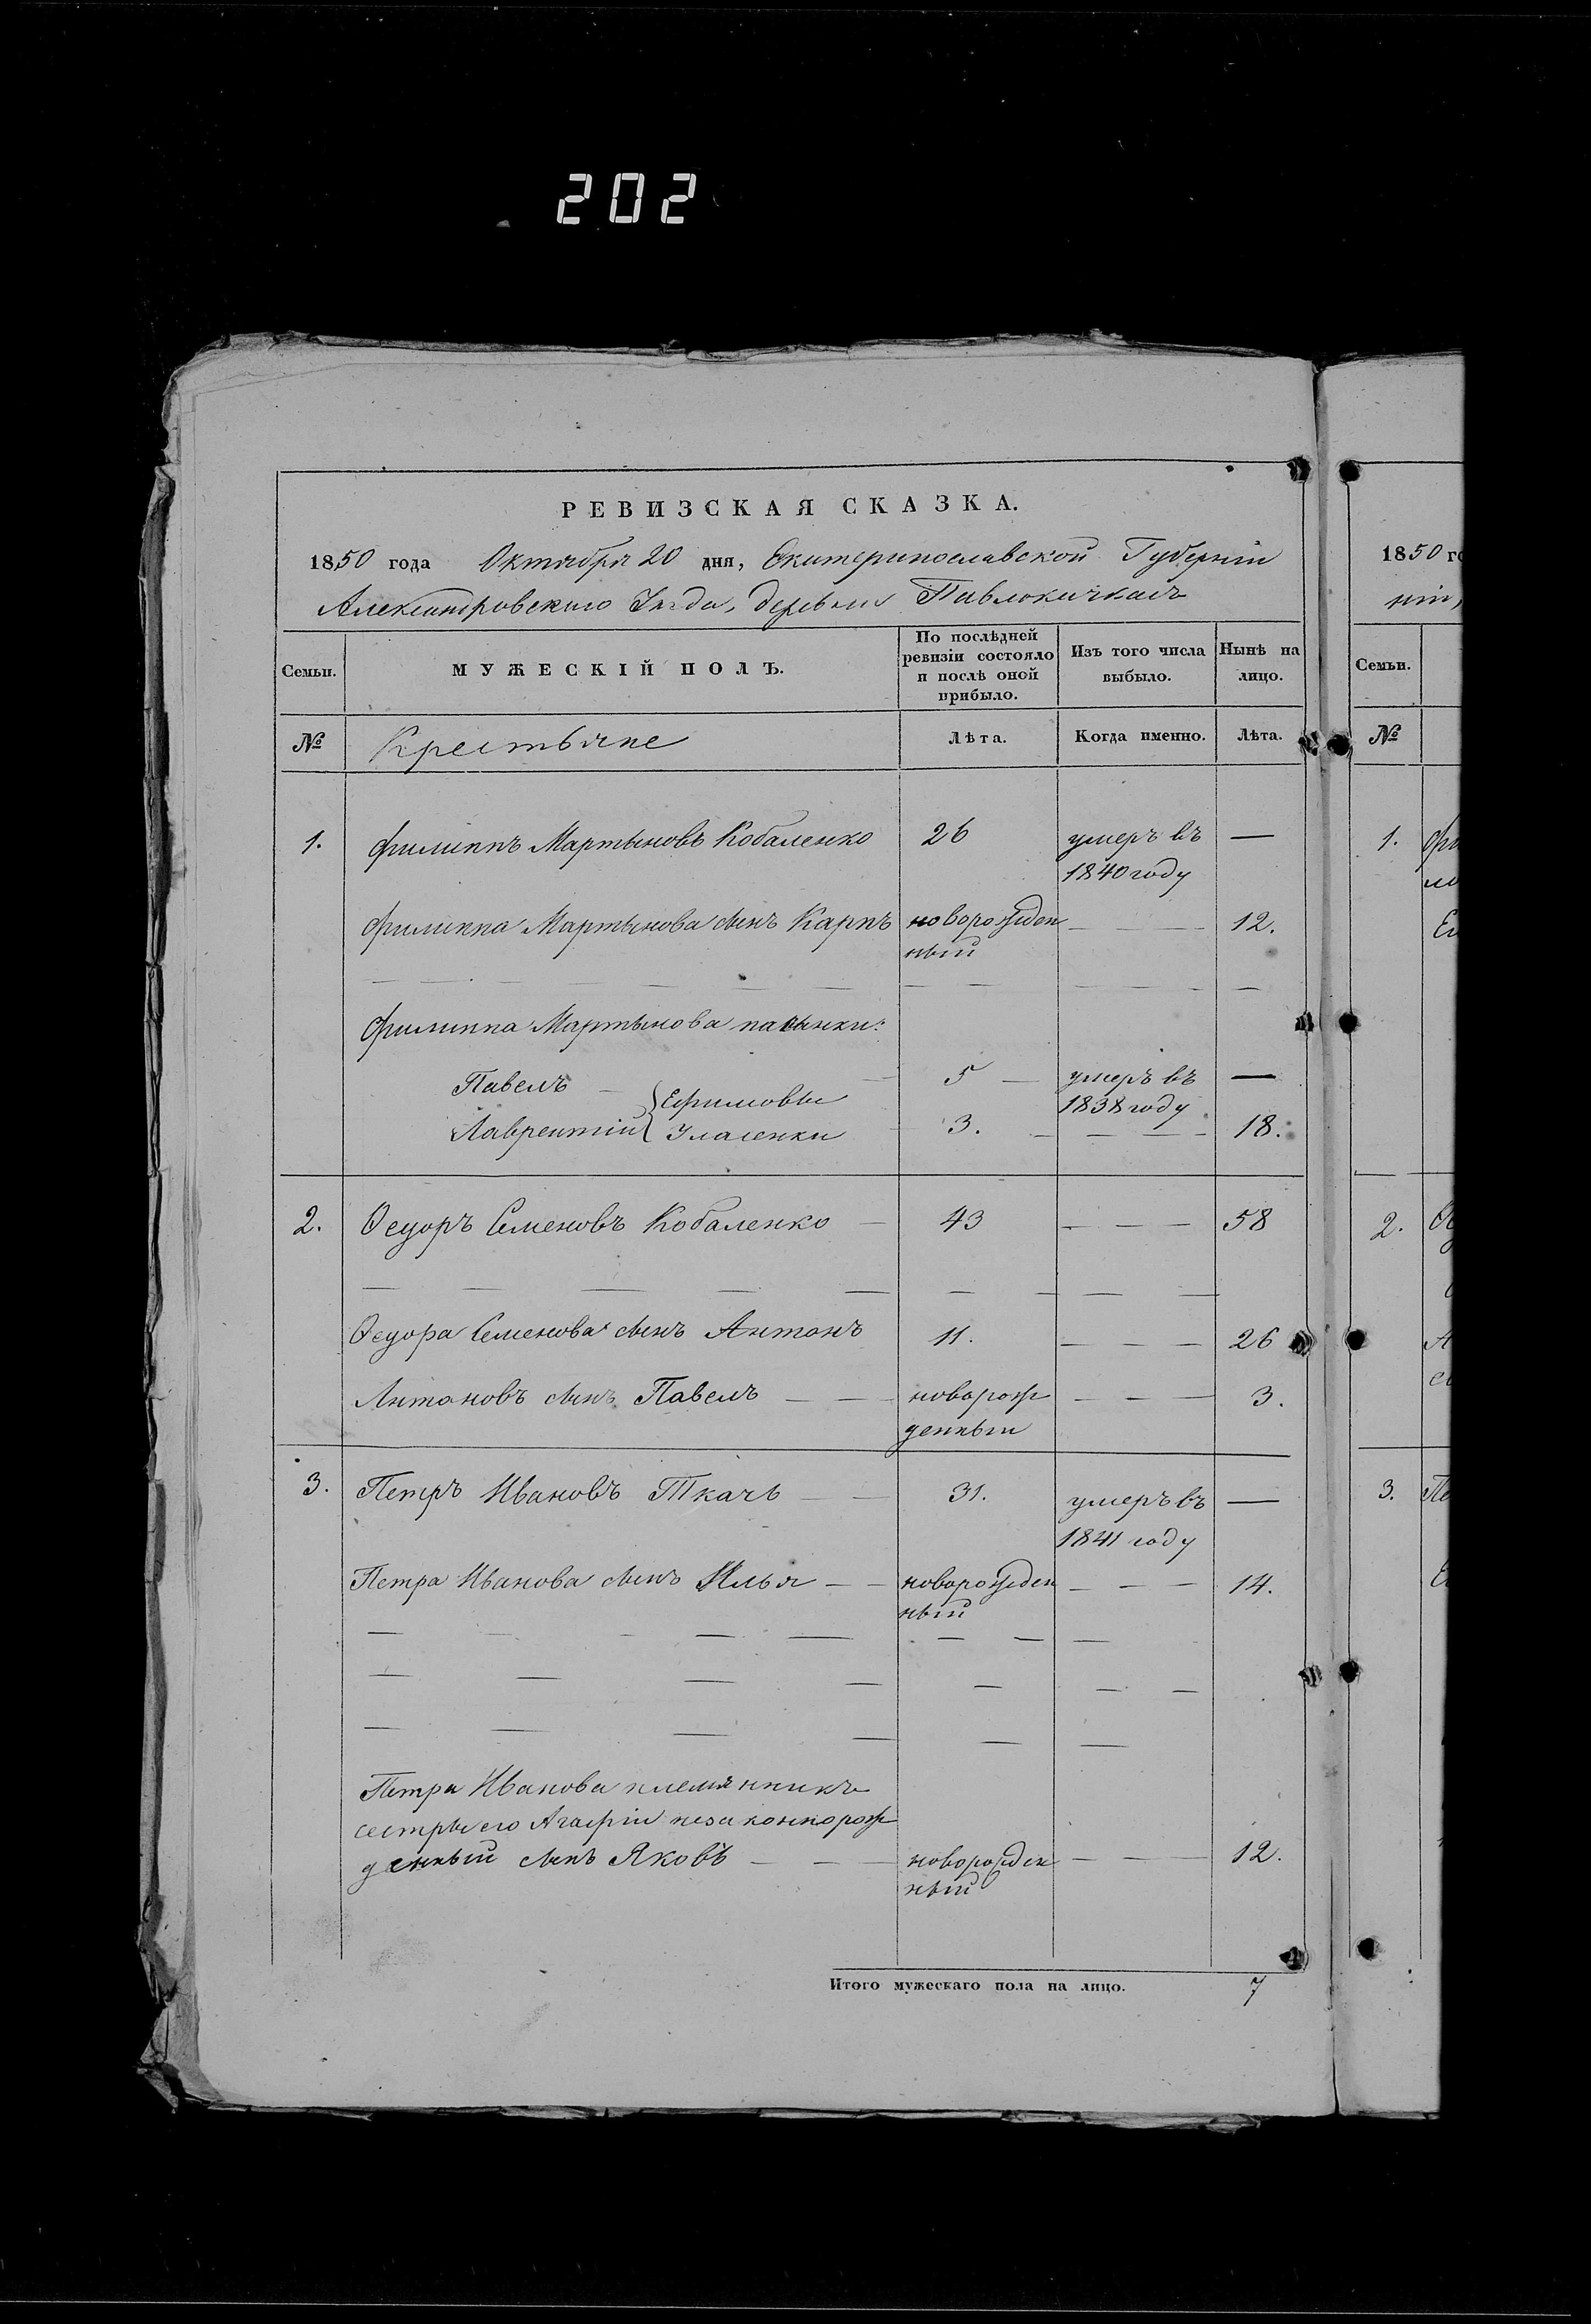 202
РЕВИЗСКАЯ СКАЗКА.
1850 года Октября 20 дня, Екатеринославской Губерніи
Александровскаго Уѣзда, деревни Павлокичкасъ
Семьи. МУЖЕСКІЙ ПОЛЪ. По послѣдней ревизіи состояло и послѣ оной прибыло. Изъ того числа выбыло. Нынѣ на лицо.
№ Крестьяне Лѣта. Когда именно. Лѣта.
1. Филиппъ Мартыновъ Коваленко 26 умеръ въ —
1840 году
Филиппа Мартынова сынъ Карпъ новорожден — — — 12.
ный
Филиппа Мартынова пасынки:
Павелъ — Ефимовы — 5 — умеръ въ —
1838 году
Лаврентій 3. — — — 18.
2. Ѳедоръ Семеновъ Коваленко — 43 — — — 58
Ѳедора Семенова сынъ Антонъ 11. — — — 26
Антоновъ сынъ Павелъ — — новорож — — — 3.
денный
3. Петръ Ивановъ Ткачь — — 31. умеръ въ —
1841 году
Петра Иванова сынъ Илья — — новорожден — — — 14.
ный
Петра Иванова племянникъ
сестры его Агафіи незаконнорож
денный сынъ Яковъ — — — новорожден — — — 12.
ный
Итого мужескаго пола на лицо. 7
1850 го
ніи,
Семьи.
№
1. Фи
Ел
2.
3. Пе